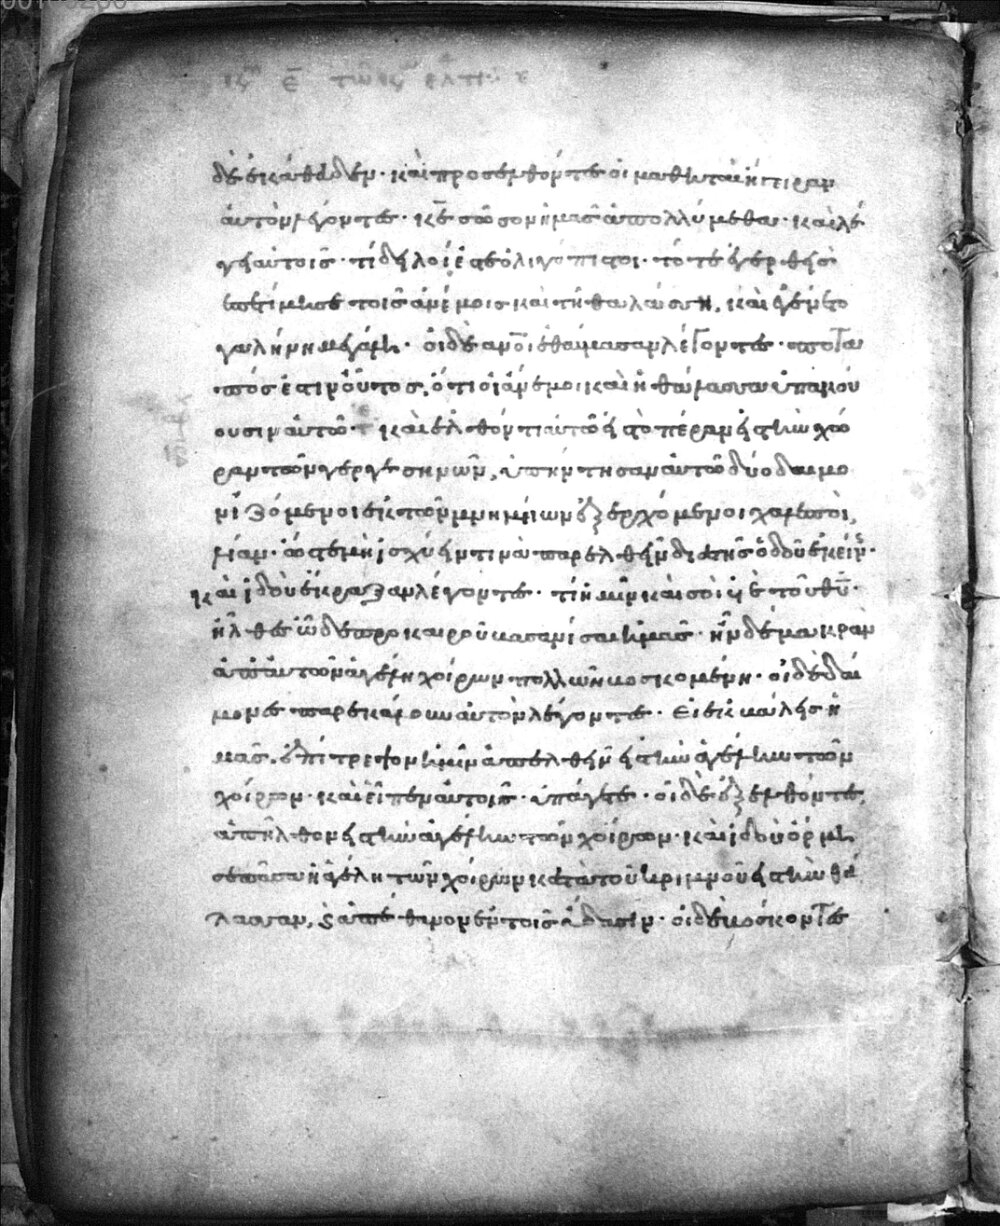 δὲ ἐκάθευδεν· καὶ προσελθόντες οἱ μαθηταὶ ἤγειραν
αὐτὸν λέγοντες· κε σῶσον ἡμᾶς ἀπολλύμεθα· καὶ λέ
γει αὐτοῖς· τί δειλοί ἐστε ὀλιγόπιστοι· τότε ἐγερθεὶς
ἐπετίμησε τοῖς ἀνέμοις καὶ τῇ θαλάσσῃ, καὶ ἐγένετο
γαλήνη μεγάλη· οἱ δὲ ανοι ἐθαύμασαν λέγοντες· ποτα
πός ἐστιν οὗτος, ὅτι οἱ ἄνεμοι καὶ ἡ θάλασσα ὑπακού
ουσιν αὐτῶ· καὶ ἐλθόντι αὐτῶ εἰς τὸ πέραν εἰς τὴν χώ
ραν τῶν γεργεσηνῶν, ὑπήντησαν αὐτῶ δύο δαιμο
νιζόμενοι ἐκ τῶν μνημείων ἐξερχόμενοι χαλεποὶ
λίαν· ὥστε μὴ ἰσχύειν τινὰ παρελθεῖν διὰ τῆς ὁδοῦ ἐκείν·
καὶ ἰδοὺ ἔκραξαν λέγοντες· τί ἡμῖν καὶ σοὶ υἱὲ τοῦ θυ·
ἦλθες ὧδε πρὸ καιροῦ βασανίσαι ἡμᾶς· ἦν δὲ μακρὰν
ἀπ' αὐτῶν ἀγέλη χοίρων πολλῶν βοσκομένη· οἱ δὲ δαί
μονες παρεκάλουν αὐτὸν λέγοντες· εἰ ἐκβάλεις ἡ
μᾶς, ἐπίτρεψον ἡμῖν ἀπελθεῖν εἰς τὴν ἀγέλην τῶν
χοίρων· καὶ εἶπεν αὐτοῖς· ὑπάγετε· οἱ δὲ ἐξελθόντες
ἀπῆλθον εἰς τὴν ἀγέλην τῶν χοίρων· καὶ ἰδοὺ ὥρμη
σε πᾶσα ἡ ἀγέλη τῶν χοίρων κατὰ τοῦ κρημνοῦ εἰς τὴν θά
λασσαν, καὶ ἀπέθανον ἐν τοῖς ὕδασιν· οἱ δὲ βόσκοντες